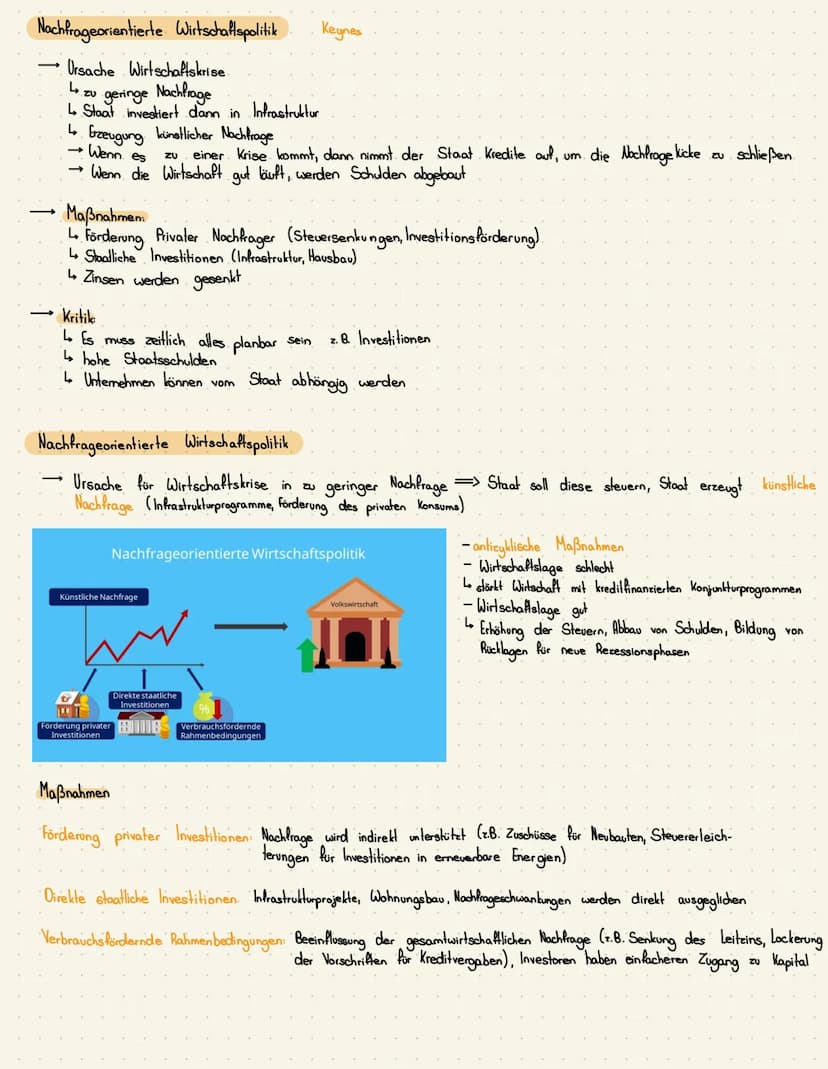 Nachfrageorientierte Wirtschaftspolitik Keynes
→ Ursache Wirtschaftskrise
↳ zu geringe Nachfrage
↳ Staat investiert dann in Infrastruktur
↳ Erzeugung künstlicher Nachfrage
→ Wenn es zu einer Krise kommt, dann nimmt der Staat Kredite auf, um die Nachfragelücke zu schließen
→ Wenn die Wirtschaft gut läuft, werden Schulden abgebaut
→ Maßnahmen:
↳ Förderung Privater Nachfrager (Steuersenkungen, Investitionsförderung)
↳ Staatliche Investitionen (Infrastruktur, Hausbau)
↳ Zinsen werden gesenkt
→ Kritik
↳ Es muss zeitlich alles planbar sein z.B. Investitionen
↳ hohe Staatsschulden
↳ Unternehmen können vom Staat abhängig werden
Nachfrageorientierte Wirtschaftspolitik
→ Ursache für Wirtschaftskrise in zu geringer Nachfrage ⟹ Staat soll diese steuern, Staat erzeugt künstliche
Nachfrage (Infrastrukturprogramme, Förderung des privaten Konsums)
Nachfrageorientierte Wirtschaftspolitik
Künstliche Nachfrage
Volkswirtschaft
Direkte staatliche
Investitionen
%
Förderung privater
Investitionen
Verbrauchsfördernde
Rahmenbedingungen
- anticyklische Maßnahmen
- Wirtschaftslage schlecht
↳ stärkt Wirtschaft mit kreditfinanzierten Konjunkturprogrammen
- Wirtschaftslage gut
↳ Erhöhung der Steuern, Abbau von Schulden, Bildung von
Rücklagen für neue Rezessionsphasen
Maßnahmen
Förderung privater Investitionen: Nachfrage wird indirekt unterstützt (z.B. Zuschüsse für Neubauten, Steuererleich-
terungen für Investitionen in erneuerbare Energien)
Direkte staatliche Investitionen: Infrastrukturprojekte, Wohnungsbau, Nachfrageschwankungen werden direkt ausgeglichen
Verbrauchsfördernde Rahmenbedingungen: Beeinflussung der gesamtwirtschaftlichen Nachfrage (z.B. Senkung des Leitzins, Lockerung
der Vorschriften für Kreditvergaben), Investoren haben einfacheren Zugang zu Kapital